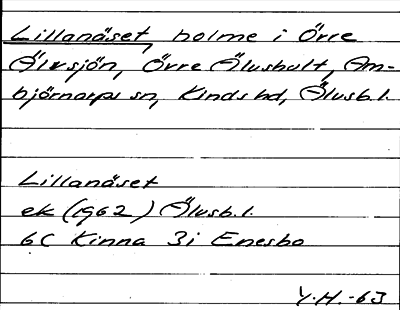 Lillanäset, holme i Övre
Älvsjön, Övre Älvshult, Am-
björnarps sn, Kinds hd, Älvsb.l.
Lillanäset
ek (1962) Älvsb.l.
6C Kinna 3i Enesbo
Y.H.-63